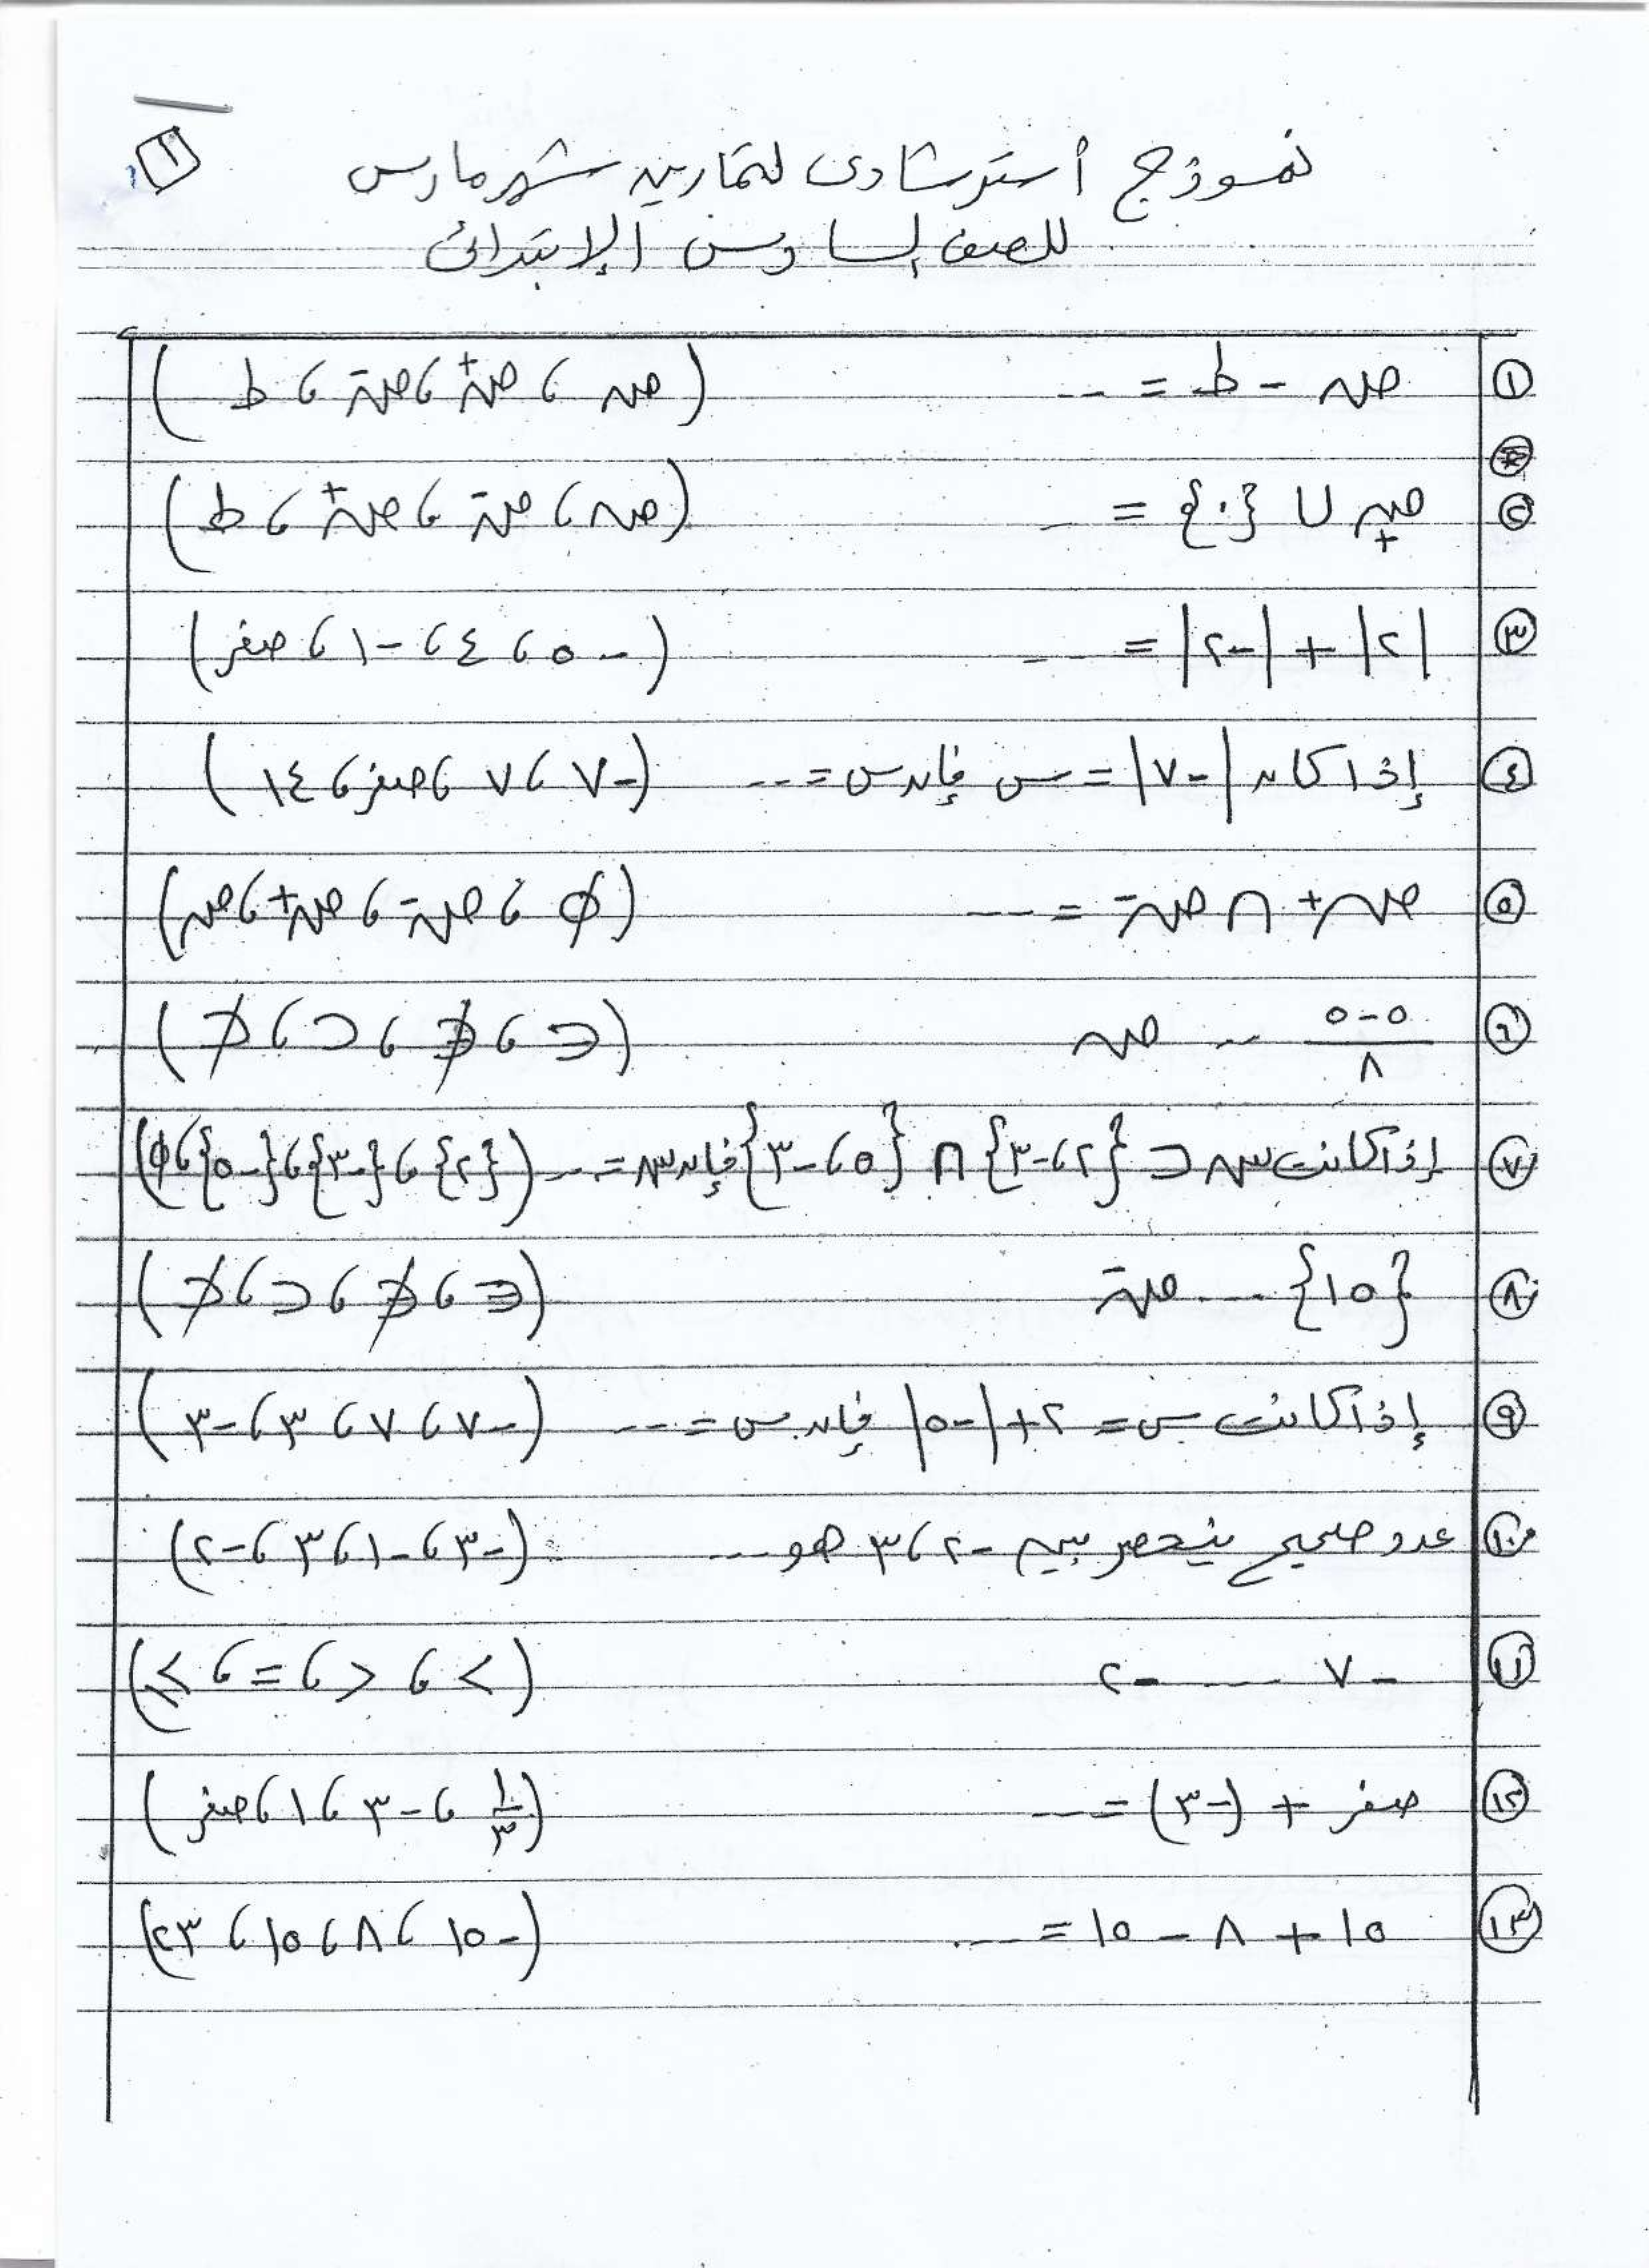 ١
نموذج أسترشادى لتمارين شهر مارس
للصف السادس الإبتدائى
① صـ - ط = --- (صـ ، صـ+ ، صـ- ، ط)
② صـ+ ∪ {٠} = -- (صـ ، صـ- ، صـ+ ، ط)
③ |٢| + |-٢| = --- (-٥ ، ٤ ، -١ ، صفر)
④ إذا كان |-٧| = س فإن س = --- (-٧ ، ٧ ، صفر ، ١٤)
⑤ صـ+ ∩ صـ- = --- (∅ ، صـ- ، صـ+ ، صـ)
⑥ (٥-٥)/٨ --- صـ (∈ ، ∉ ، ⊂ ، ⊄)
⑦ إذا كانت سـ ⊂ {٢ ، -٣} ∩ {٥ ، -٣} فإن سـ = --- ({٢} ، {-٣} ، {-٥} ، ∅)
⑧ {١٥} --- صـ- (∈ ، ∉ ، ⊂ ، ⊄)
⑨ إذا كانت س = ٢ + |-٥| فإن س = --- (-٧ ، ٧ ، ٣ ، -٣)
⑩ عدد صحيح ينحصر بين -٢ ، ٣ هو --- (-٣ ، -١ ، ٣ ، -٢)
⑪ -٧ --- -٢ (> ، < ، = ، ≥)
⑫ صفر + (-٣) = --- (١/٣ ، -٣ ، ١ ، صفر)
⑬ ١٥ + ٨ - ١٥ = --- (-١٥ ، ٨ ، ١٥ ، ٢٣)